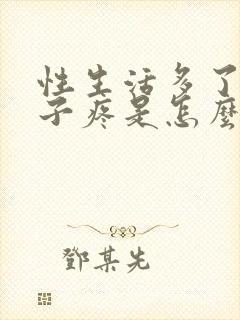 性生活多了
子疼是怎麼
鄧某先